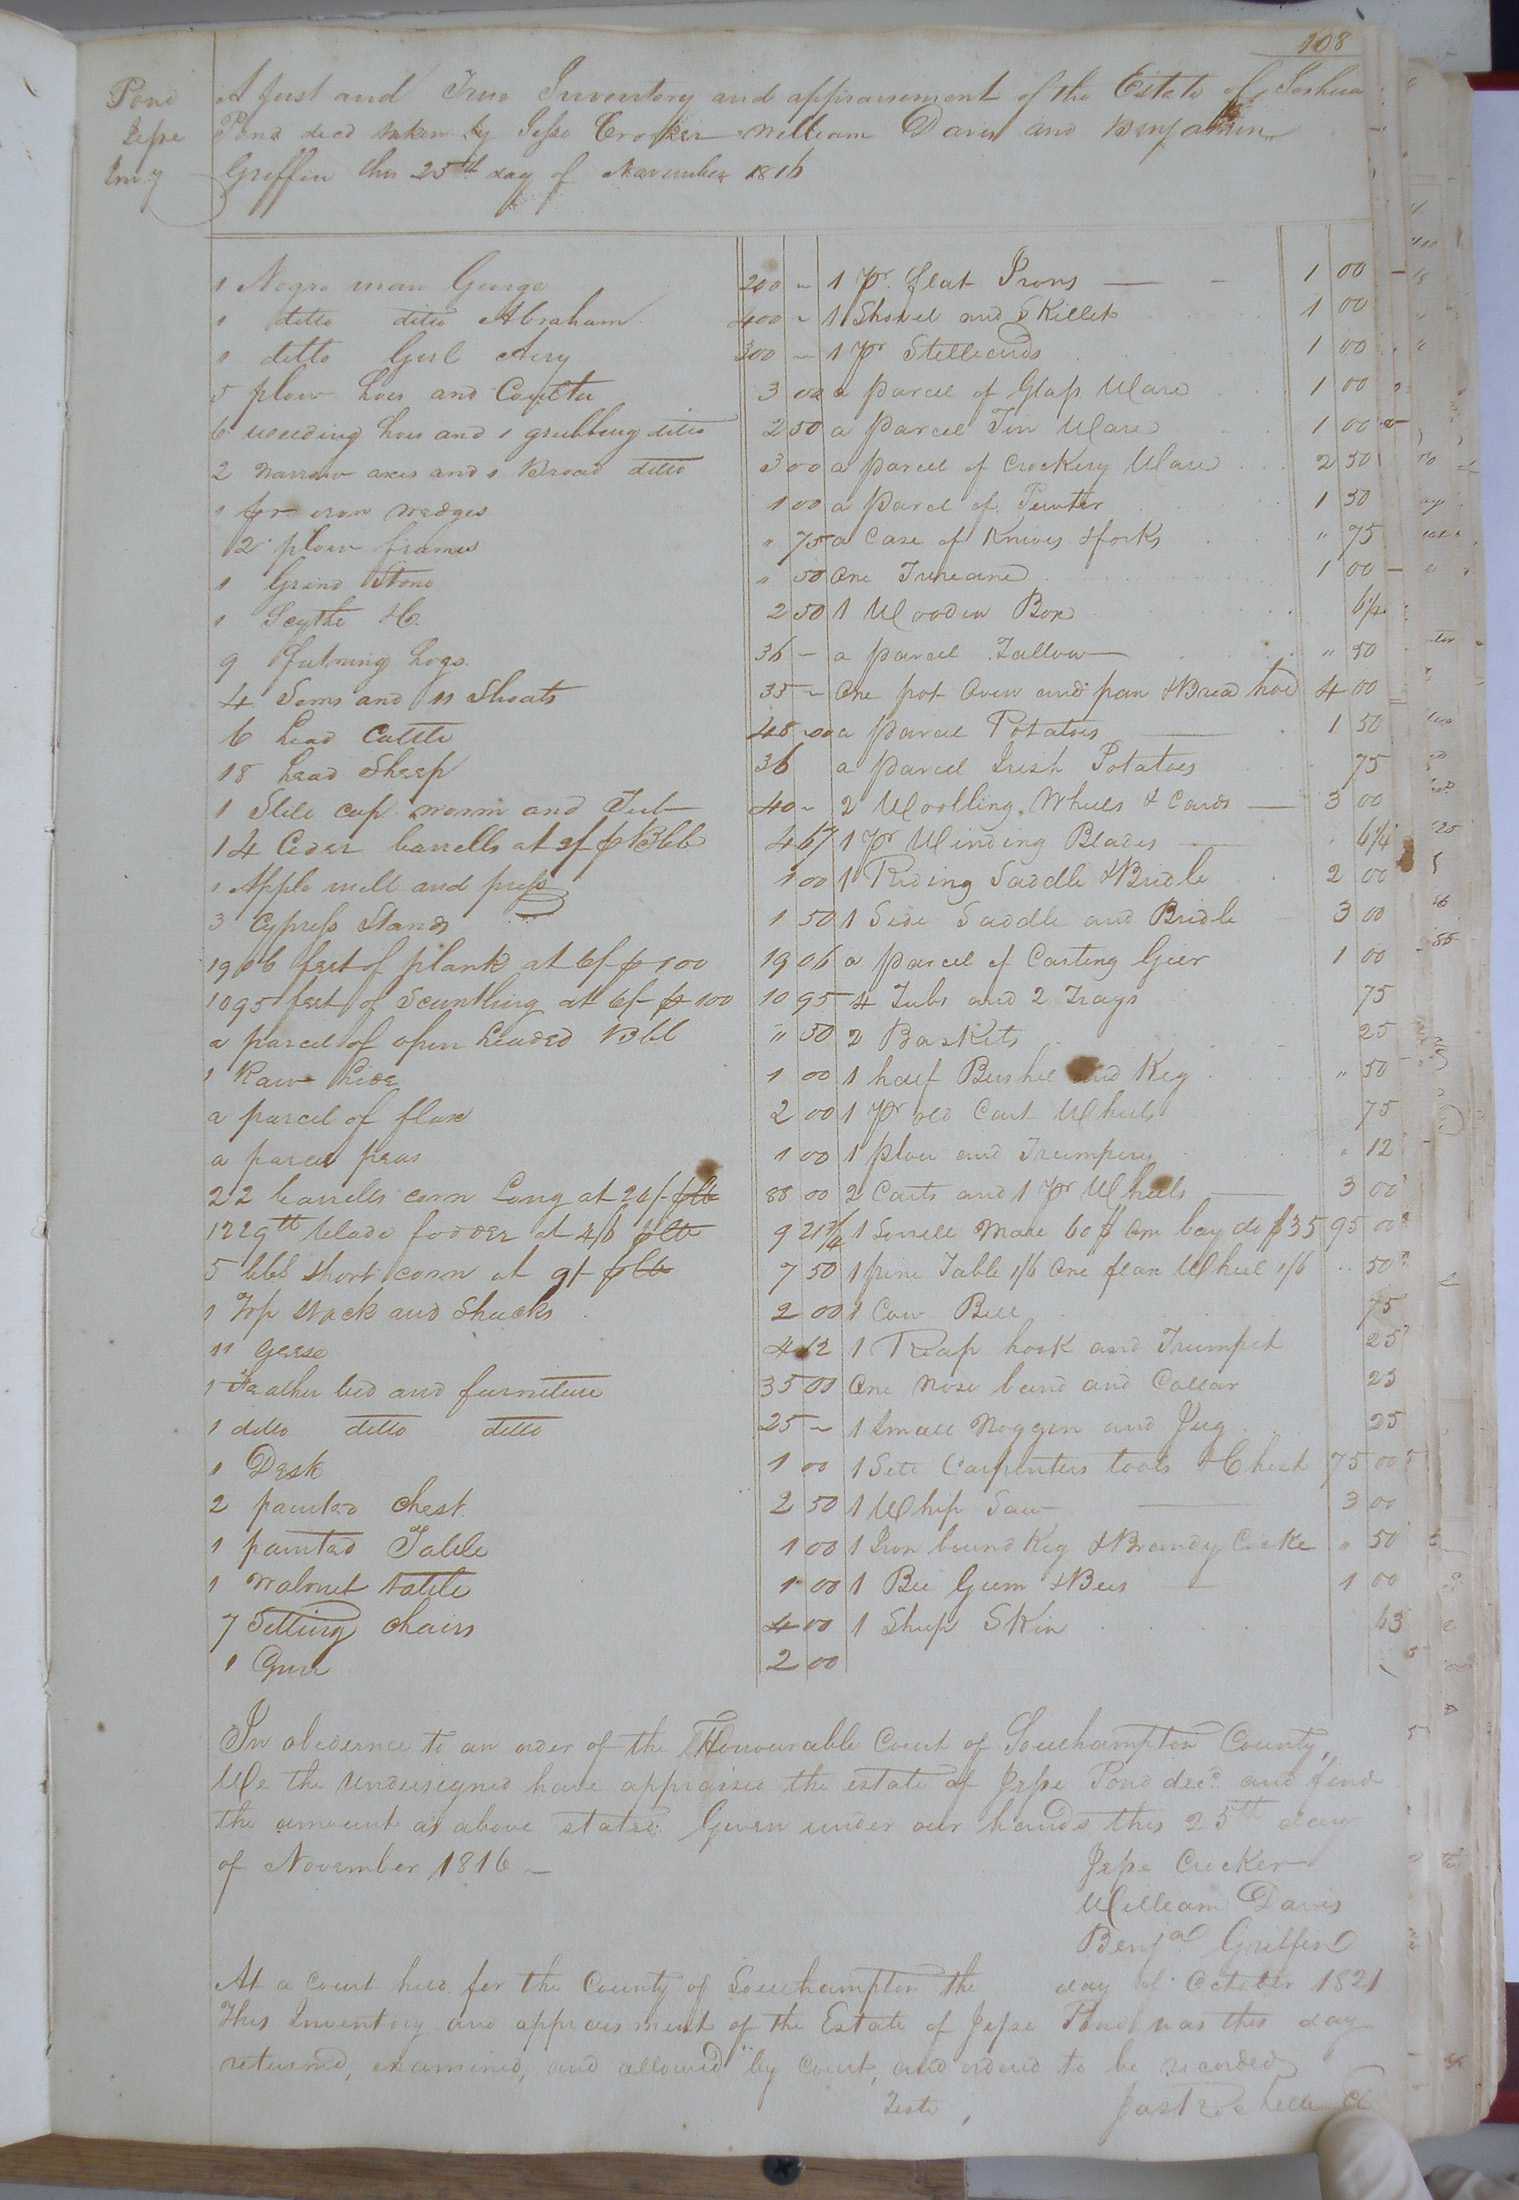 108
Pond
Jesse
Inv.y
A Just and True Inventory and appraisement of the Estate of Joshua
Pond decd taken by Jesse Crocker William Davis and Benjamin
Griffin this 25th day of November 1816
1 Negro man George 200 "
1 ditto ditto Abraham 400 "
1 ditto Girl Aery 300 "
5 plow hoes and Coulter 3 00
6 weeding hoes and 1 grubbing ditto 2 50
2 narrow axes and 1 Broad ditto 3 00
1 pr iron wedges 1 00
2 plow frames " 75
1 Grind Stone " 50
1 Scythe &c. 2 50
9 fatning hogs. 36 -
4 Sows and 11 Shoats 35 -
6 head Cattle 48 00
18 head Sheep 36
1 Still cap worm and Tub 40 -
14 Ceder barrells at 2/ p Bbb 4 67
1 Apple mill and press 1 00
3 Cypress Stands 1 50
1906 feet of plank at 6/ p 100 19 06
1095 feet of Scuntling at 6/ p 100 10 95
a parcel of open headed Bbb " 50
1 Raw hide 1 00
a parcel of flax 2 00
a parcel peas 1 00
22 barrells corn Long at 24/ 88 00
1229th blade fodder at 4/6 9 21 3/4
5 bbls short corn at 9/ 7 50
1 Top stack and Shucks 2 00
11 Geese 4 12
1 Feather bed and furniture 35 00
1 ditto ditto ditto 25 -
1 Desk 1 00
2 painted chest. 2 50
1 painted Table 1 00
1 walnut table 1 00
7 Setting chairs 4 00
1 Gun 2 00
1 pr. flat Irons 1 00
1 Shovel and Skillet 1 00
1 pr Stilleards 1 00
a parcel of Glass Ware 1 00
a parcel Tin Ware 1 00
a parcel of Crockery Ware 2 50
a parcel of Pewter 1 50
a Case of Knives & forks " 75
One 1 00
1 Wooden Box 6 1/4
a parcel Tallow " 50
One pot Oven and pan & Bread hoe 4 00
a parcel Potatoes 1 50
a parcel Irish Potatoes 75
2 Woolling Wheels & Cards 3 00
1 pr Winding Blades 6 1/4
1 Riding Saddle & Bridle 2 00
1 Side Saddle and Bridle 3 00
a parcel of Carting Geer 1 00
4 Tubs and 2 Trays 75
2 Baskets 25
1 half Bushel and Keg " 50
1 pr old Cart Wheels 75
1 plow and Trumpery " 12
2 Carts and 1 pr Wheels 3 00
1 Sorrell Mare 60 $ One bay do $35 95 00
1 pine Table 1/6 One flax Wheel 1/6 50
1 Cow Bell 75
1 Reap hook and Trumpet 25
One nose band and Collar 25
1 Small Noggin and Jug 25
1 Sett Carpenters tools & Chest 75 00
1 Whip Saw 3 00
1 Iron bound Keg & Brandy Cocke " 50
1 Bee Gum & Bees 1 00
1 Sheep Skin 63
In obedience to an order of the Honourable Court of Southampton County,
We the Undersigned have appraised the estate of Jesse Pond decd. and find
the amount as above stated. Given under our hands this 25th day
of November 1816 -
Jesse Crocker
William Davis
Benja Griffin
At a court held for the County of Southampton the day of October 1821
This Inventory and appraisment of the Estate of Jesse Pond was this day
returned, examined, and allowed by Court, and ordered to be recorded
Teste,
Jas Rochelle Cl